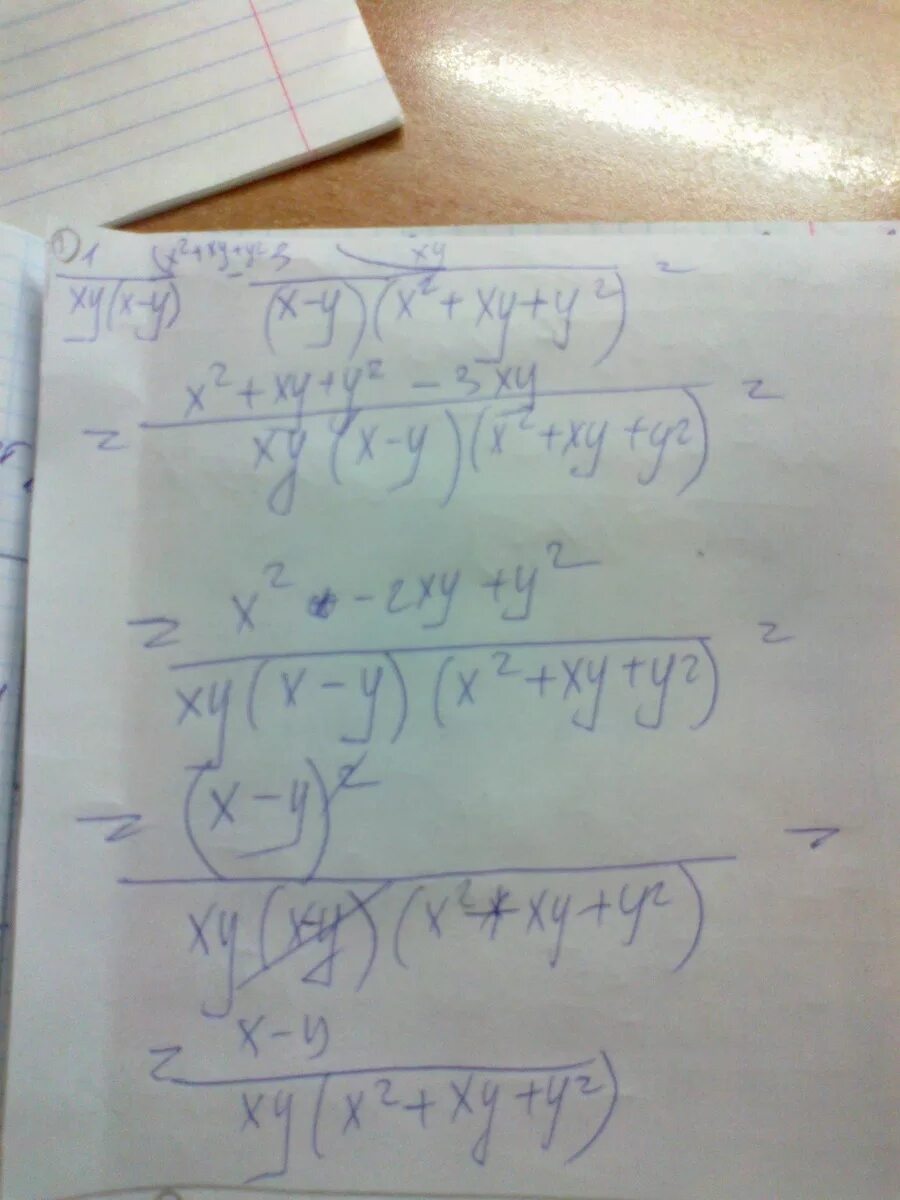 1) 1 (x²+xy+y² - 3 xy
xy(x-y) (x-y)(x²+xy+y²) =
x²+xy+y² - 3xy
= xy(x-y)(x²+xy+y²) =
= x² -2xy +y²
xy(x-y)(x²+xy+y²) =
= (x-y)² =
xy(xy)(x²+xy+y²)
= x-y
xy(x²+xy+y²)